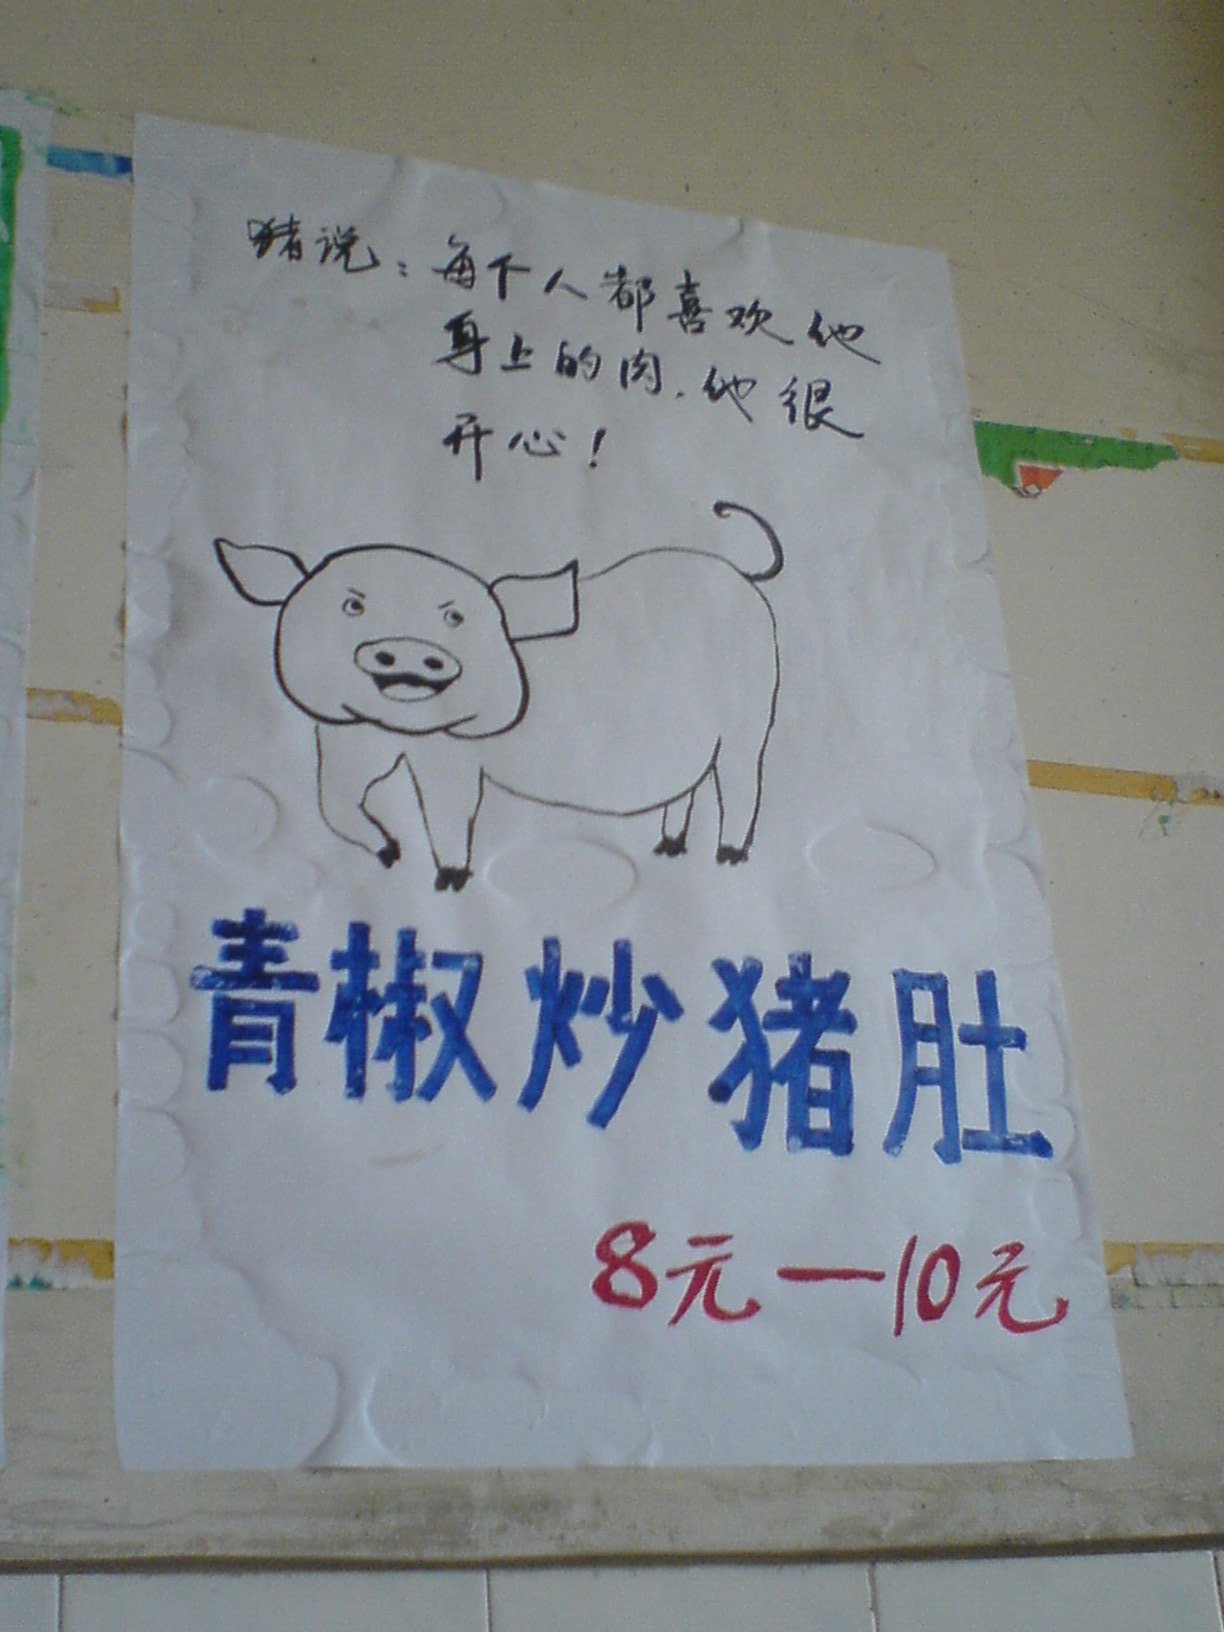 猪说：每个人都喜欢他
身上的肉.他很
开心！
青椒炒猪肚
8元—10元